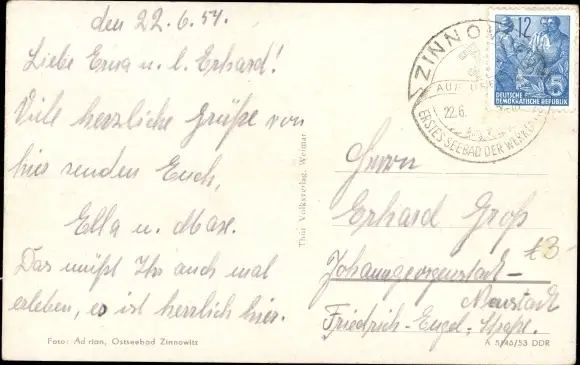 den 22.6.54.
Liebe Erna u. l. Erhard!
Viele herzliche Grüße von
hier senden Euch,
Ella u. Max.
Das müßt Ihr auch mal
erleben, es ist herrlich hier.
Foto: Adrian, Ostseebad Zinnowitz
Thür Volksverlag, Weimar
ZINNOW
AUF USE
22.6.
ERSTES SEEBAD DER WERKTÄ
12
5
DEUTSCHE
DEMOKRATISCHE REPUBLIK
Herrn
Erhard Groß
Johanngeorgenstadt-
Neustadt
Friedrich-Engel-Straße.
£3-
A 5/45/53 DDR